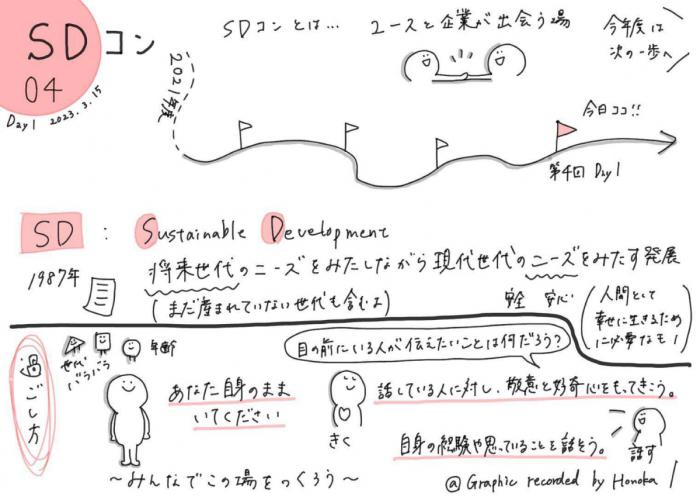 SDコン
04
Day1 2023.3.15
SDコンとは… ユースと企業が出会う場
今年度は
次の一歩へ
2021年度
今日ココ!!
第4回 Day1
SD : Sustainable Development
将来世代のニーズをみたしながら現代世代のニーズをみたす発展
1987年
(まだ産まれていない世代も含むよ)
安全 安心
(人間として
幸せに生きるため
に必要なもの)
過ごし方
世代
バラバラ
年齢
目の前にいる人が伝えたいことは何だろう?
あなた自身のまま
いてください
きく
話している人に対し、敬意と好奇心をもってきこう。
自身の経験や思っていることを話そう。
話す
〜みんなでこの場をつくろう〜
@Graphic recorded by Honoka